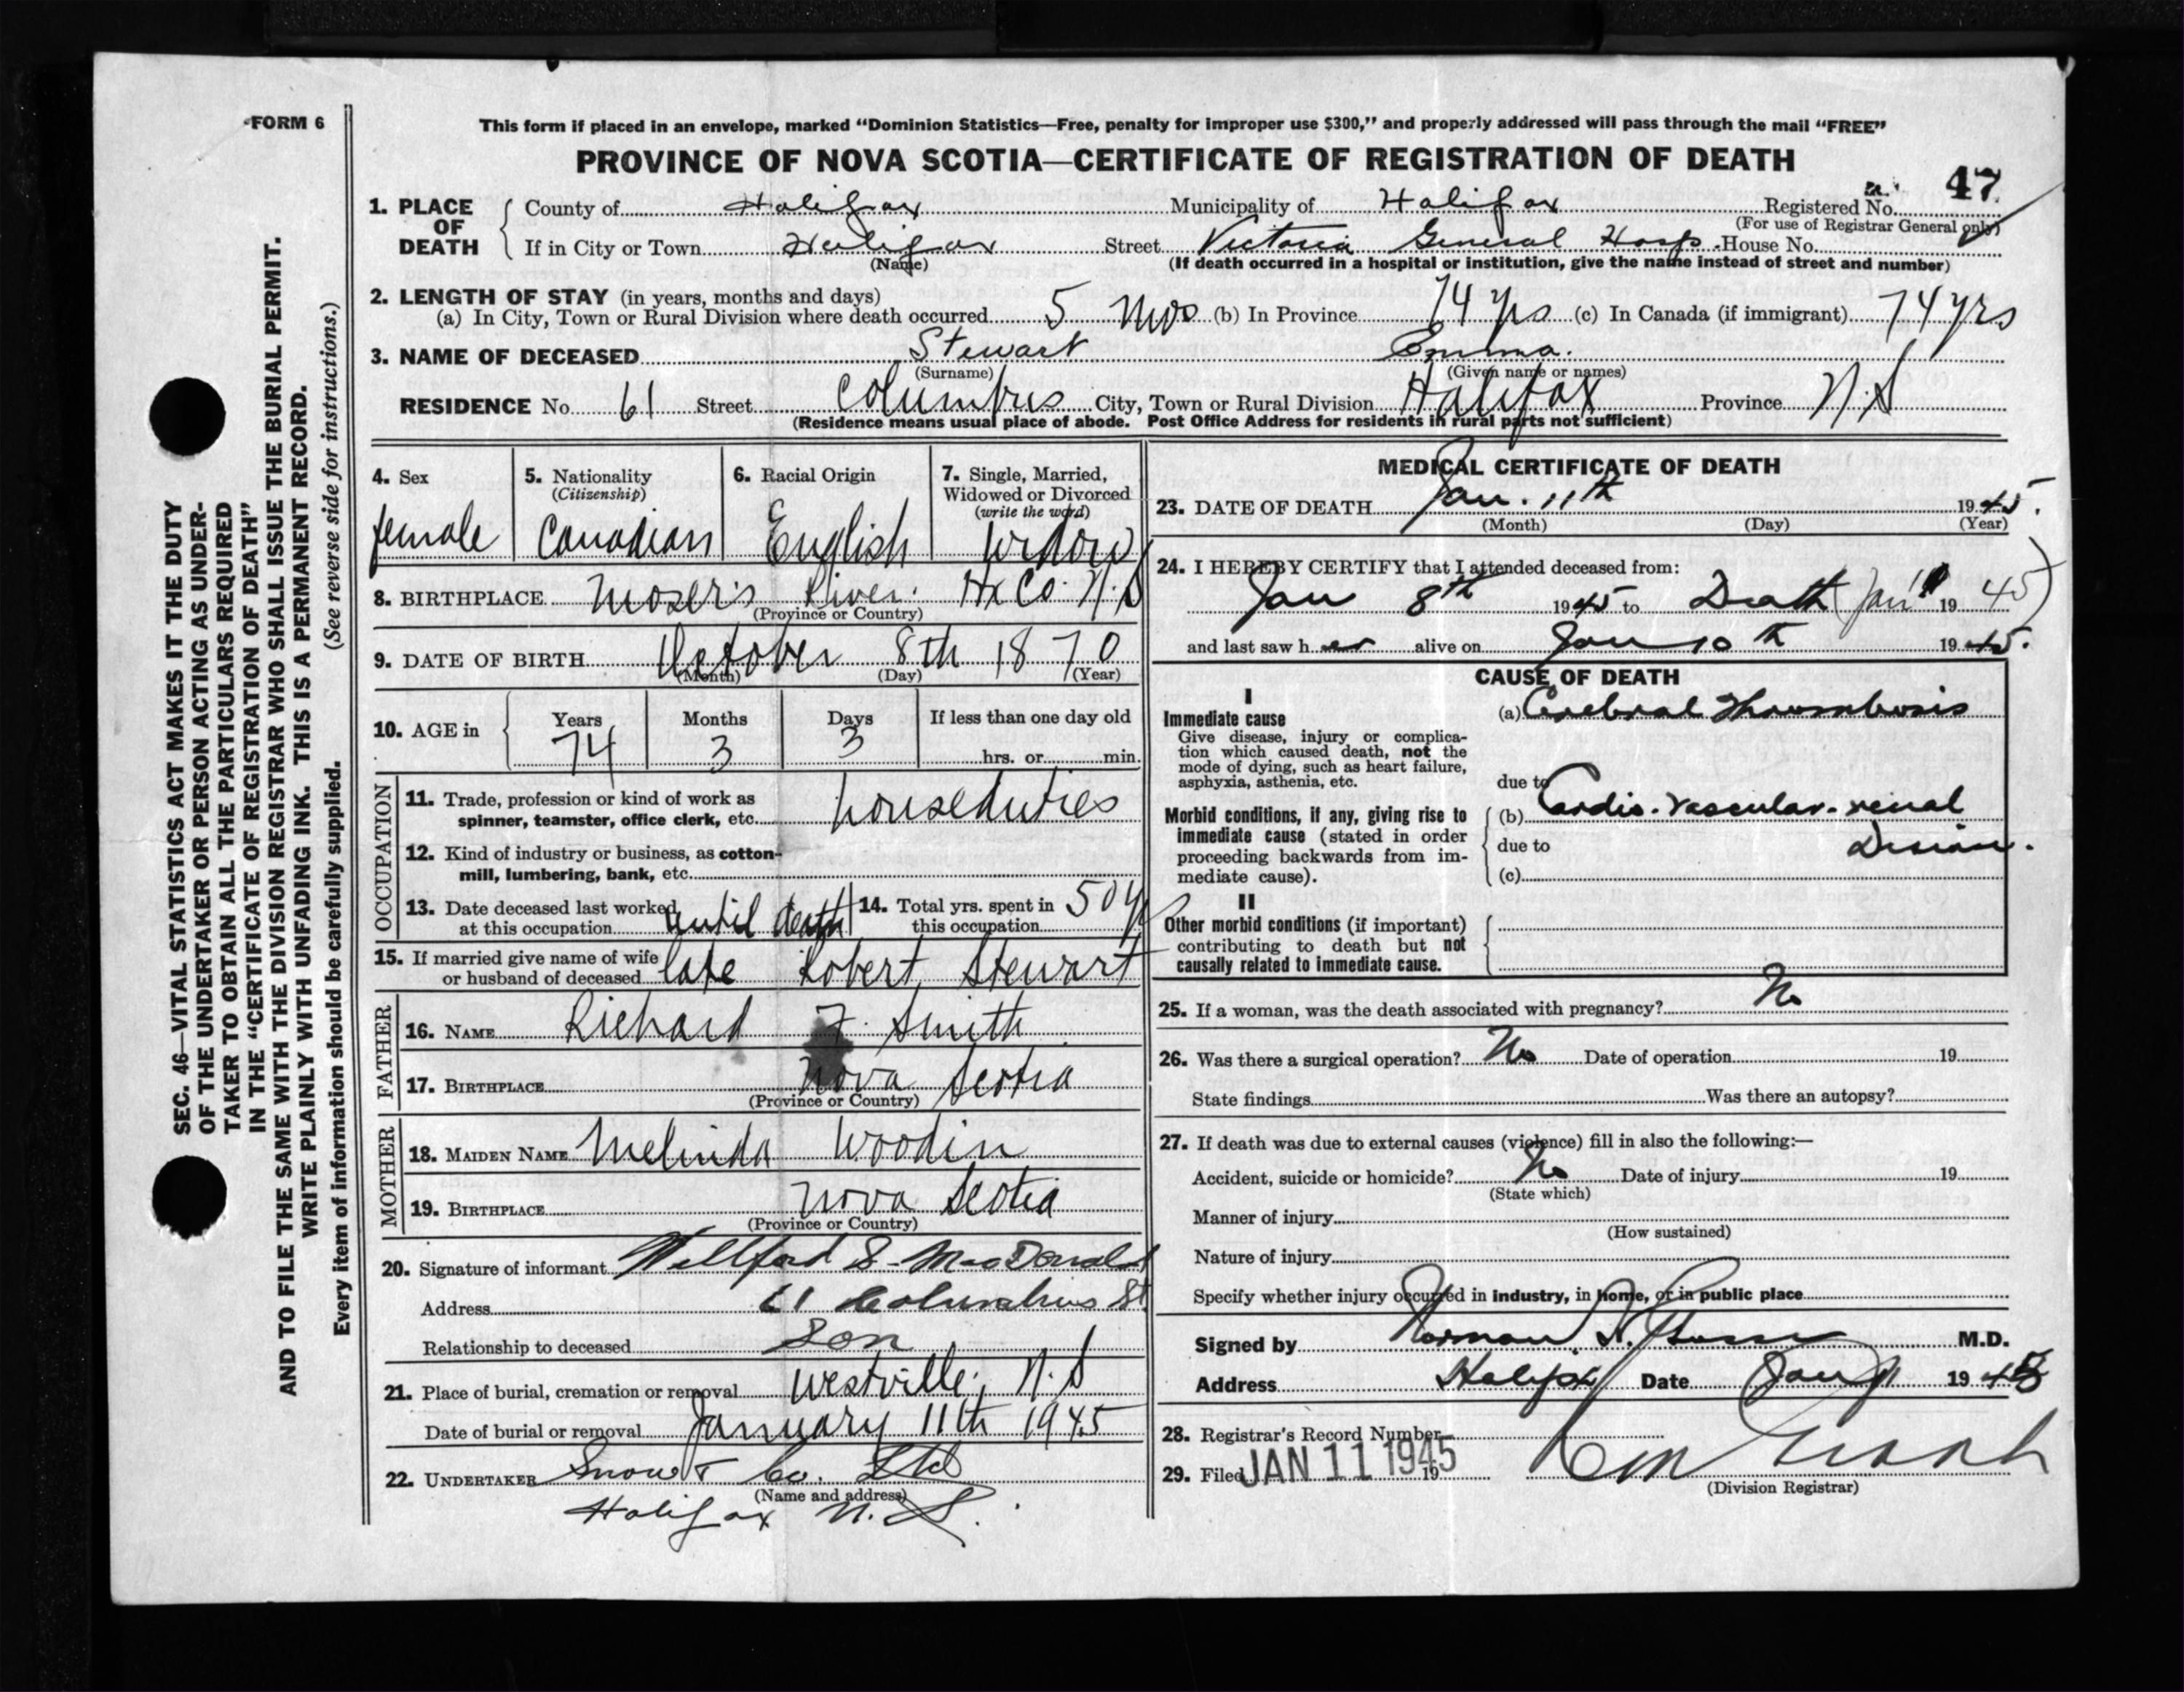 FORM 6
This form if placed in an envelope, marked "Dominion Statistics—Free, penalty for improper use $300," and properly addressed will pass through the mail "FREE"
PROVINCE OF NOVA SCOTIA—CERTIFICATE OF REGISTRATION OF DEATH
47
1. PLACE OF DEATH
County of Halifax Municipality of Halifax Registered No.
(For use of Registrar General only)
If in City or Town Halifax Street Victoria General Hosp. House No.
(Name) (If death occurred in a hospital or institution, give the name instead of street and number)
2. LENGTH OF STAY (in years, months and days)
(a) In City, Town or Rural Division where death occurred 5 mos (b) In Province 74 yrs (c) In Canada (if immigrant) 74 yrs
3. NAME OF DECEASED Stewart Emma.
(Surname) (Given name or names)
RESIDENCE No. 61 Street Columbus City, Town or Rural Division Halifax Province N.S
(Residence means usual place of abode. Post Office Address for residents in rural parts not sufficient)
4. Sex
female
5. Nationality
(Citizenship)
Canadian
6. Racial Origin
English
7. Single, Married,
Widowed or Divorced
(write the word)
widow
8. BIRTHPLACE Moser's River. Hx Co. N.S
(Province or Country)
9. DATE OF BIRTH October 8th 1870
(Month) (Day) (Year)
10. AGE in
Years Months Days If less than one day old
74 3 3 hrs. or min.
OCCUPATION
11. Trade, profession or kind of work as
spinner, teamster, office clerk, etc. houseduties
12. Kind of industry or business, as cotton-
mill, lumbering, bank, etc.
13. Date deceased last worked
at this occupation until death
14. Total yrs. spent in
this occupation 50 yrs
15. If married give name of wife
or husband of deceased late Robert Stewart
FATHER
16. NAME Richard F. Smith
17. BIRTHPLACE Nova Scotia
(Province or Country)
MOTHER
18. MAIDEN NAME Melinda Woodin
19. BIRTHPLACE Nova Scotia
(Province or Country)
20. Signature of informant Willford S. MacDonald
Address 61 Columbus St
Relationship to deceased Son
21. Place of burial, cremation or removal Westville, N.S
Date of burial or removal January 11th 1945
22. UNDERTAKER Snow & Co. Ltd
(Name and address)
Halifax N.S.
MEDICAL CERTIFICATE OF DEATH
23. DATE OF DEATH Jan. 11th 1945.
(Month) (Day) (Year)
24. I HEREBY CERTIFY that I attended deceased from:
Jan 8th 1945 to Death (Jan 11 1945)
and last saw her alive on Jan 10th 1945.
CAUSE OF DEATH
I
Immediate cause
Give disease, injury or complica-
tion which caused death, not the
mode of dying, such as heart failure,
asphyxia, asthenia, etc.
(a) Cerebral Thrombosis
due to
Morbid conditions, if any, giving rise to
immediate cause (stated in order
proceeding backwards from im-
mediate cause).
(b) Cardio-vascular-renal
due to Disease.
(c)
II
Other morbid conditions (if important)
contributing to death but not
causally related to immediate cause.
25. If a woman, was the death associated with pregnancy? No
26. Was there a surgical operation? No Date of operation 19
State findings Was there an autopsy?
27. If death was due to external causes (violence) fill in also the following:—
Accident, suicide or homicide? No Date of injury 19
(State which)
Manner of injury
(How sustained)
Nature of injury
Specify whether injury occurred in industry, in home, or in public place
Signed by Norman H. M.D.
Address Halifax Date Jan 11 1945
28. Registrar's Record Number
29. Filed JAN 11 1945 19
(Division Registrar)
SEC. 46—VITAL STATISTICS ACT MAKES IT THE DUTY
OF THE UNDERTAKER OR PERSON ACTING AS UNDER-
TAKER TO OBTAIN ALL THE PARTICULARS REQUIRED
IN THE "CERTIFICATE OF REGISTRATION OF DEATH"
AND TO FILE THE SAME WITH THE DIVISION REGISTRAR WHO SHALL ISSUE THE BURIAL PERMIT.
WRITE PLAINLY WITH UNFADING INK. THIS IS A PERMANENT RECORD.
Every item of information should be carefully supplied. (See reverse side for instructions.)